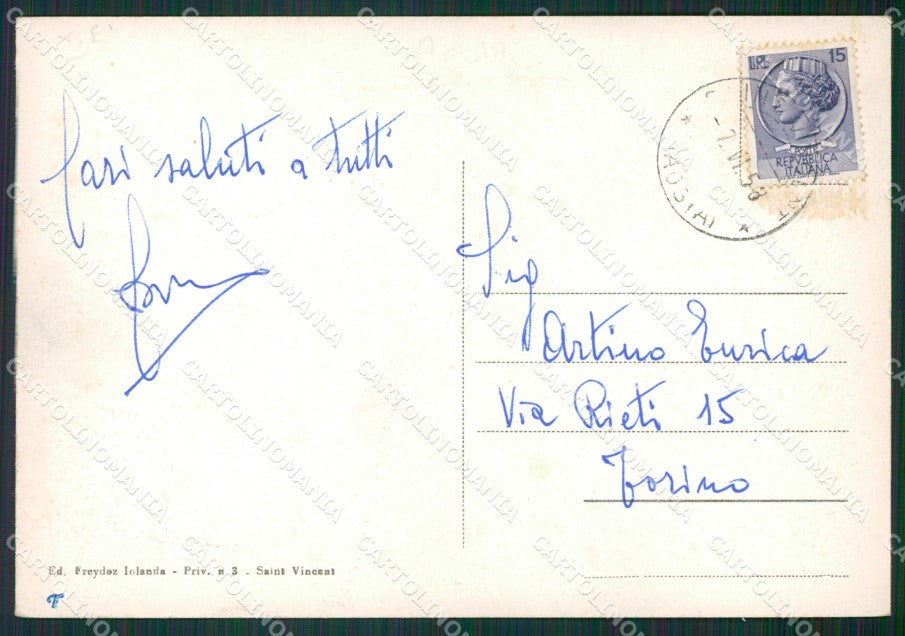 Cari saluti a tutti
Sig
Artino Enrica
Via Rieti 15
Torino
Ed. Freydoz Iolanda - Priv. n 3 - Saint Vincent
15
POSTE
REPVBBLICA
ITALIANA
(AOSTA)
CARTOLINOMANIA